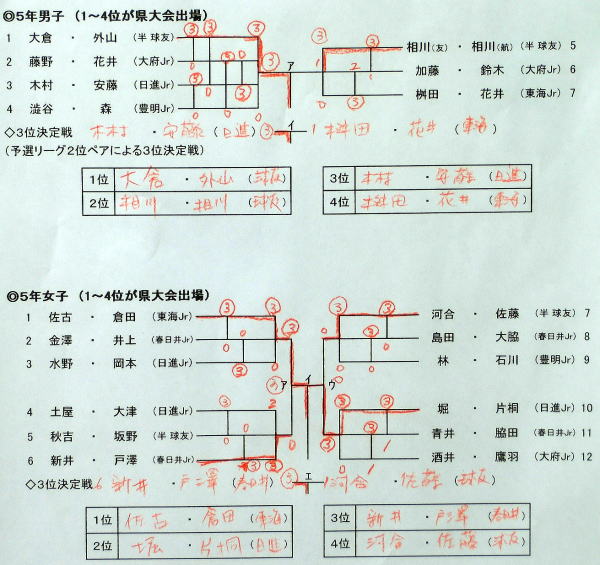 ◎5年男子 (1～4位が県大会出場)
1 大倉 ・ 外山 (半 球友)
2 藤野 ・ 花井 (大府Jr)
3 木村 ・ 安藤 (日進Jr)
4 澁谷 ・ 森 (豊明Jr)
相川(友) ・ 相川(航) (半 球友) 5
加藤 ・ 鈴木 (大府Jr) 6
桝田 ・ 花井 (東海Jr) 7
ア
◇3位決定戦 木村 ・ 安藤 (日進) ③ イ 1 桝田 ・ 花井 (東海)
(予選リーグ2位ペアによる3位決定戦)
1位 大倉 ・ 外山 (球友)
2位 相川 ・ 相川 (球友)
3位 木村 ・ 安藤 (日進)
4位 桝田 ・ 花井 (東海)
◎5年女子 (1～4位が県大会出場)
1 佐古 ・ 倉田 (東海Jr)
2 金澤 ・ 井上 (春日井Jr)
3 水野 ・ 岡本 (日進Jr)
4 土屋 ・ 大津 (日進Jr)
5 秋吉 ・ 坂野 (半 球友)
6 新井 ・ 戸澤 (春日井Jr)
河合 ・ 佐藤 (半 球友) 7
島田 ・ 大脇 (春日井Jr) 8
林 ・ 石川 (豊明Jr) 9
堀 ・ 片桐 (日進Jr) 10
青井 ・ 脇田 (春日井Jr) 11
酒井 ・ 鷹羽 (大府Jr) 12
ア イ ウ
◇3位決定戦 6 新井 ・ 戸澤 (春日井) ③ エ 1 河合 ・ 佐藤 (球友)
1位 佐古 ・ 倉田 (東海)
2位 堀 ・ 片桐 (日進)
3位 新井 ・ 戸澤 (春日井)
4位 河合 ・ 佐藤 (球友)